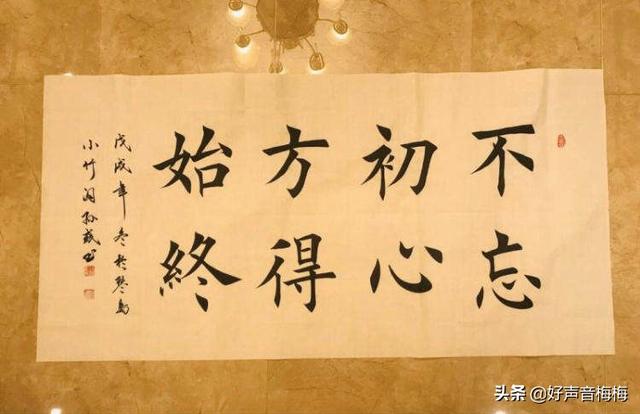 不忘
初心
方得
始終
戊戌年冬於琴島
小竹
头条 @好声音梅梅